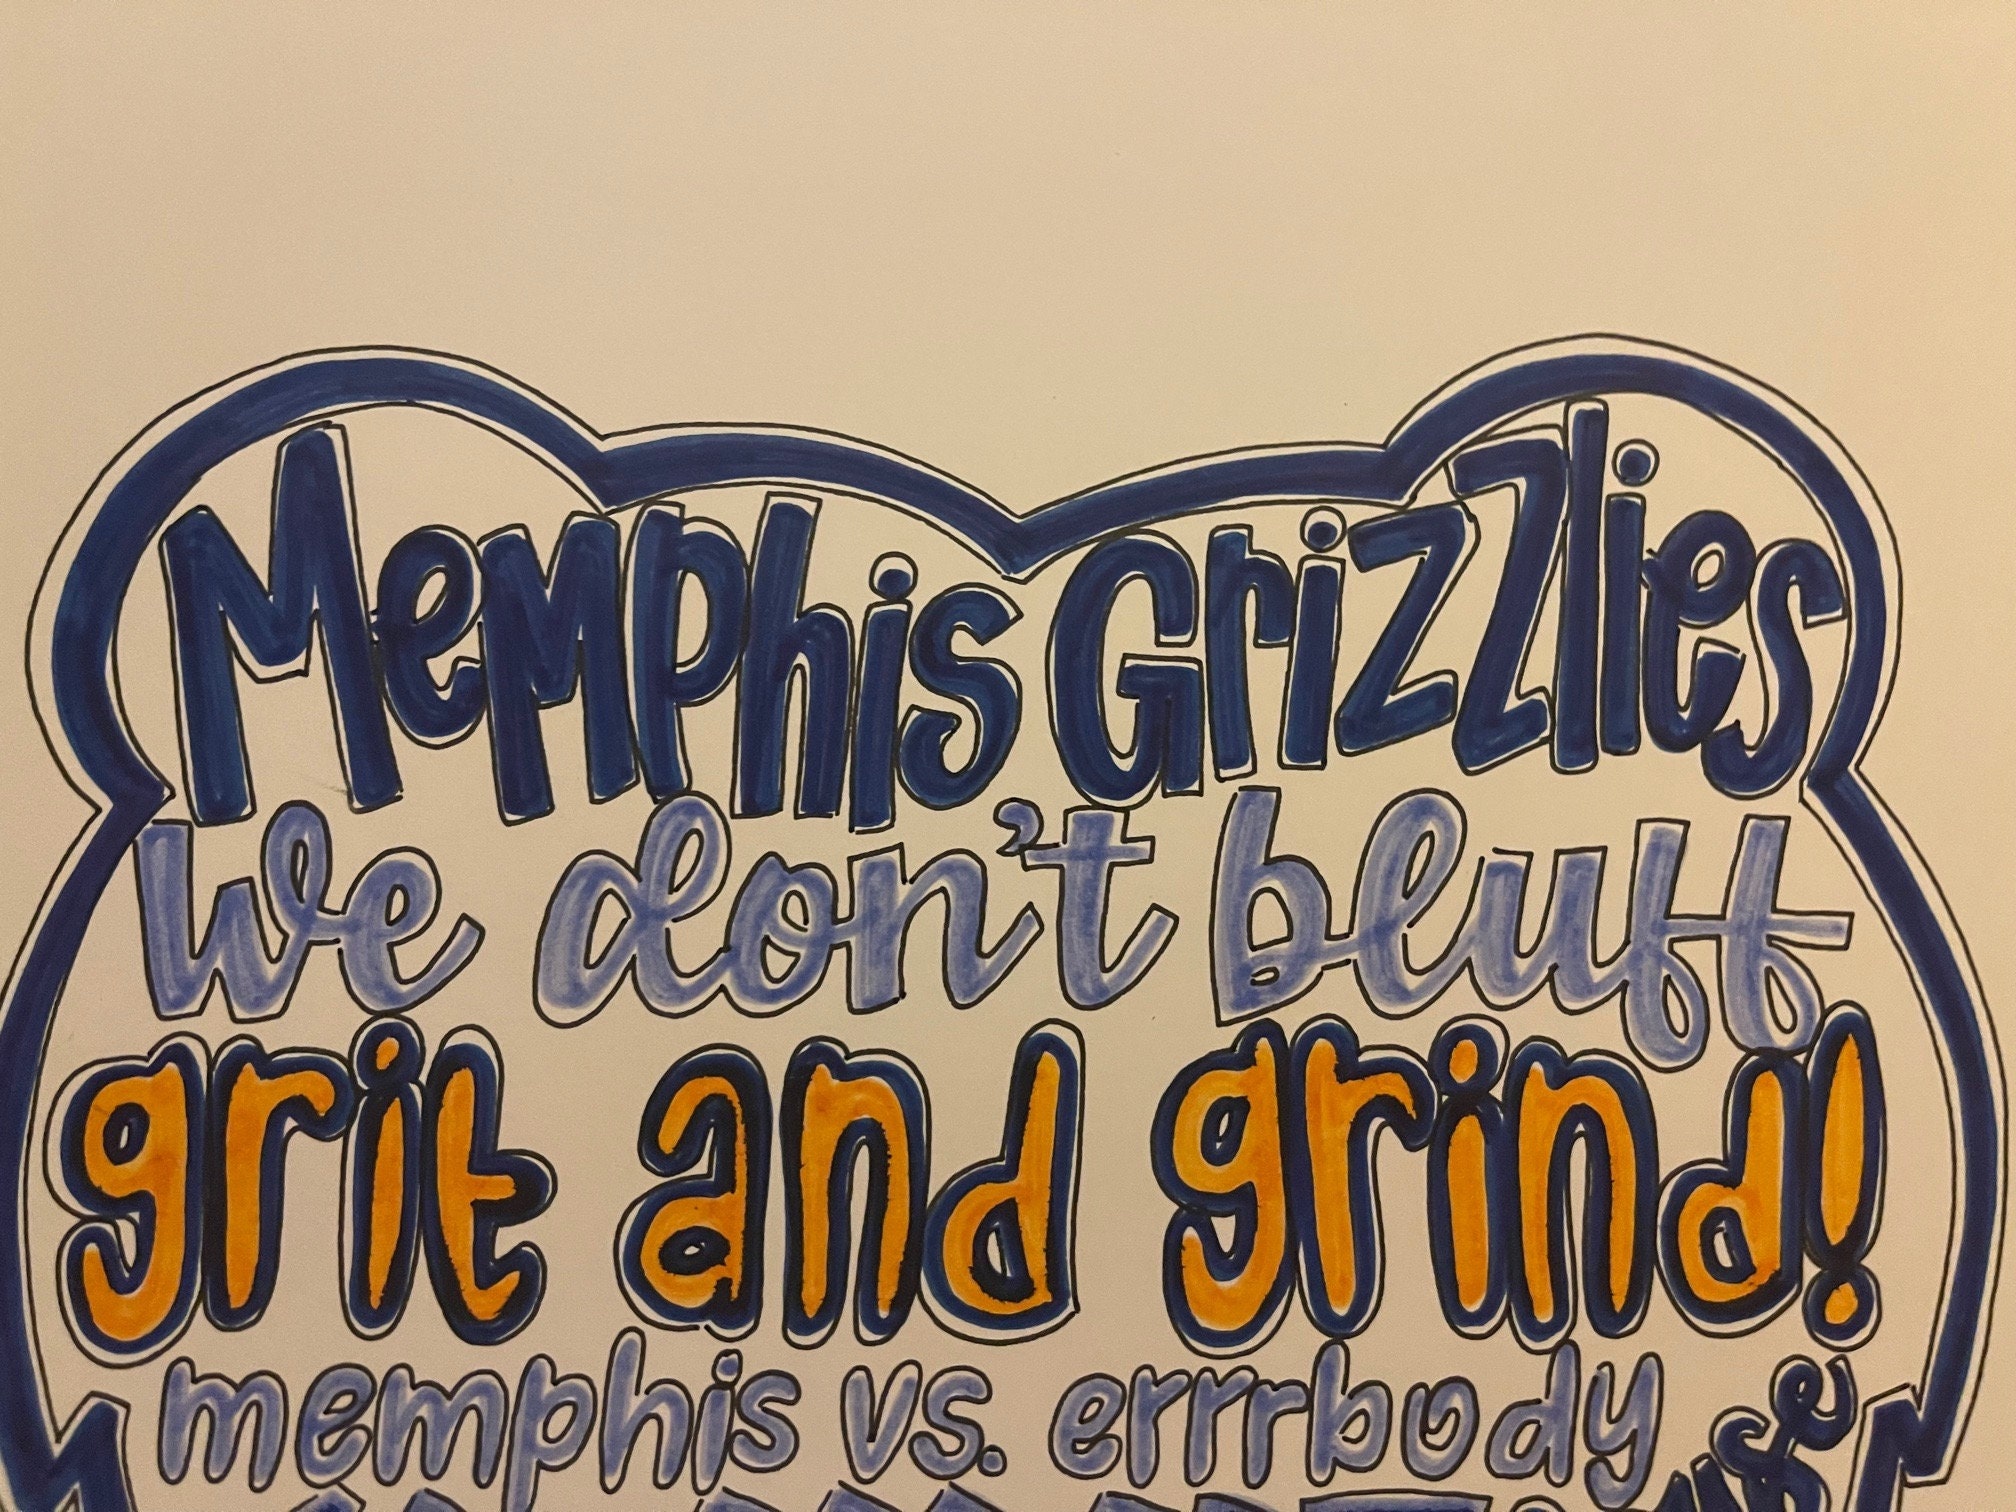 Memphis Grizzlies
we don't bluff
grit and grind!
memphis vs. errrbody